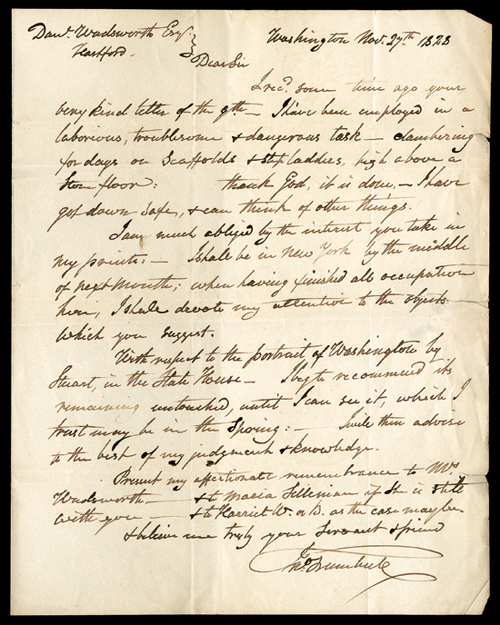 Danl. Wadsworth Esqr. Washington Nov. 27th 1828
Hartford.
Dear Sir
I recd. some time ago your
very kind letter of the 9th — I have been employed in a
laborious, troublesome & dangerous task — clambering
for days on Scaffolds & step ladders, high above a
Stone floor: thank God, it is done, — I have
got down safe, & can think of other things.
I am much obliged by the interest you take in
my points: — I shall be in New York by the middle
of next Month; when having finished all occupation
here, I shall devote my attention to the objects
which you suggest.
With respect to the portrait of Washington by
Stuart, in the State House — I beg to recommend its
remaining untouched, until I can see it, which I
trust may be in the Spring: — I will then advise
to the best of my judgment & knowledge.
Present my affectionate remembrance to Mrs
Wadsworth — & to Maria Silliman if she is still
with you — & to Harriet W. or D. as the case may be
& believe me truly your Servant & friend
Jno. Trumbull